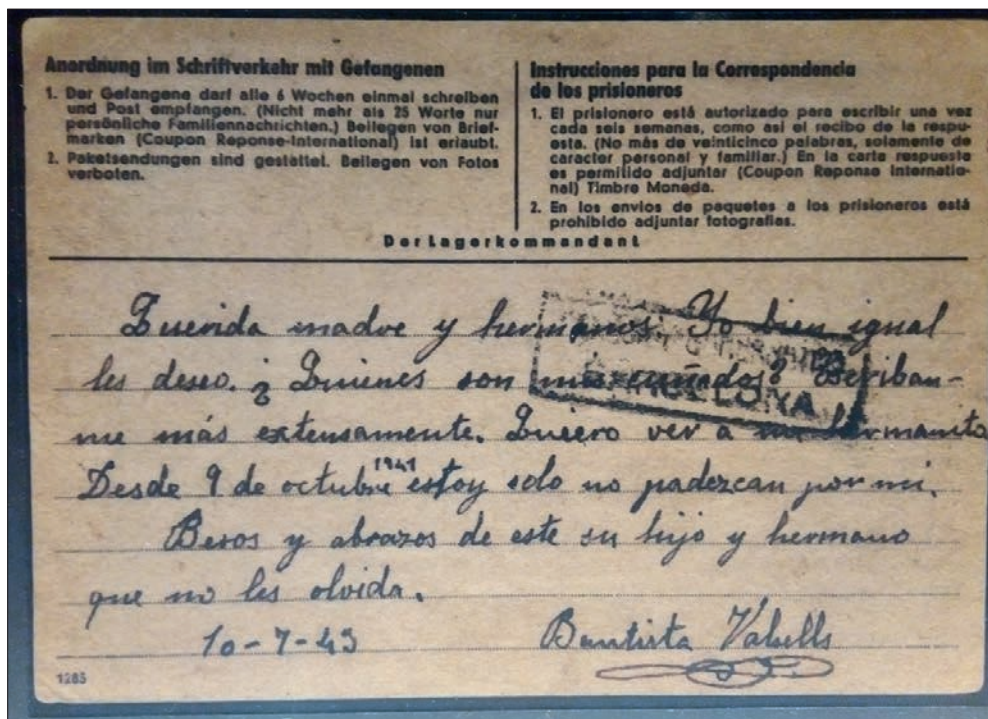 Anordnung im Schriftverkehr mit Gefangenen
1. Der Gefangene darf alle 6 Wochen einmal schreiben
und Post empfangen. (Nicht mehr als 25 Worte nur
persönliche Familiennachrichten.) Beilegen von Brief-
marken (Coupon Reponse-International) ist erlaubt.
2. Paketsendungen sind gestattet. Beilegen von Fotos
verboten.
Instrucciones para la Correspondencia
de los prisioneros
1. El prisionero está autorizado para escribir una vez
cada seis semanas, como asi el recibo de la respu-
esta. (No más de veinticinco palabras, solamente de
caracter personal y familiar.) En la carta respuesta
es permitido adjuntar (Coupon Reponse Internatio-
nal) Timbre Moneda.
2. En los envios de paquetes a los prisioneros está
prohibido adjuntar fotografias.
Der Lagerkommandant
Querida madre y hermanos. Yo bien igual
les deseo. ¿Quienes son mis cuñados? Escriban-
me más extensamente. Quiero ver a mi hermanita
Desde 9 de octubre 1941 estoy solo no padezcan por mi.
Besos y abrazos de este su hijo y hermano
que no les olvida.
10-7-43
Bautista
BARCELONA
1285